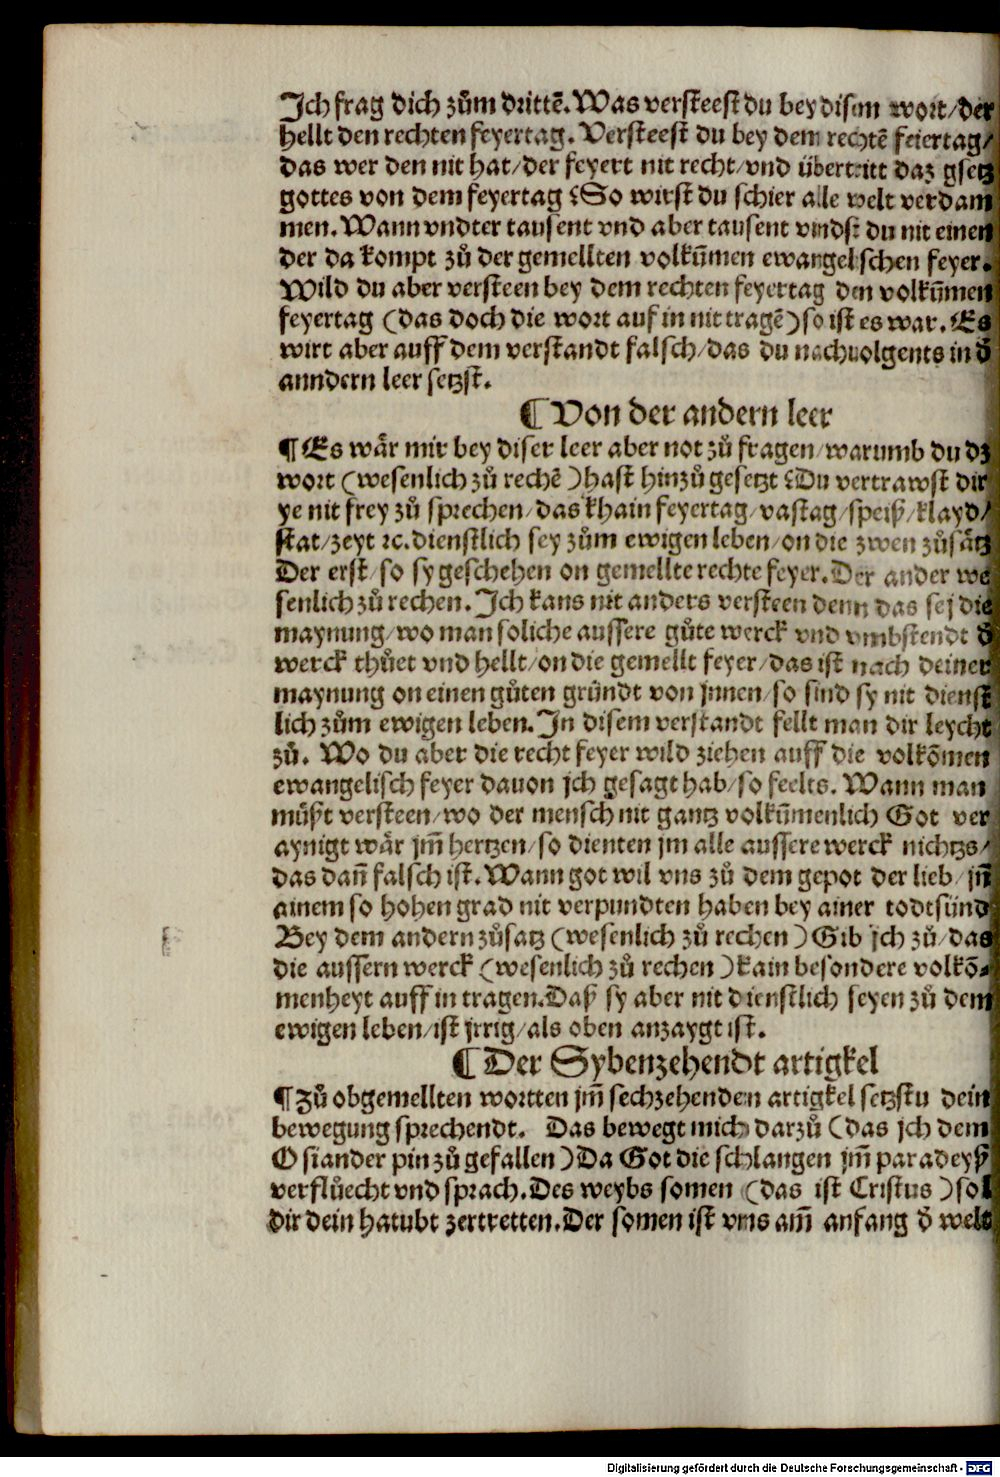 Ich frag dich zům drittē. Was versteest du bey disem wort/der
hellt den rechten feyertag. Versteest du bey dem rechtē feiertag/
das wer den nit hat/der feyert nit recht/vnd übertritt daz gsetz
gottes von dem feyertag? So wirst du schier alle welt verdam
men. Wann vndter tausent vnd aber tausent vindst du nit einen
der da kompt zů der gemellten volkūmen ewangelischen feyer.
Wild du aber versteen bey dem rechten feyertag den volkūmen
feyertag (das doch die wort auf in nit tragē) so ist es war. Es
wirt aber auff dem verstandt falsch/das du nachuolgents in d̄
anndern leer setzst.
¶ Von der andern leer
¶ Es wär mir bey diser leer aber not zů fragen/warumb du dz
wort (wesenlich zů rechē) hast hinzů gesetzt? Du vertrawst dir
ye nit frey zů sprechen/das khain feyertag/vastag/speiß/klayd/
stat/zeyt ꝛc. dienstlich sey zům ewigen leben/on die zwen zůsätz
Der erst/so sy geschehen on gemellte rechte feyer. Der ander we
senlich zů rechen. Ich kans nit anders versteen denn das sej die
maynung/wo man soliche aussere gůte werck vnd vmbstendt d̄
werck thůet vnd hellt/on die gemellt feyer/das ist nach deiner
maynung on einen gůten gründt von jnnen/so sind sy nit dienst
lich zům ewigen leben. In disem verstandt fellt man dir leycht
zů. Wo du aber die recht feyer wild ziehen auff die volkōmen
ewangelisch feyer dauon jch gesagt hab/so feelts. Wann man
müßt versteen/wo der mensch nit gantz volkūmenlich Got ver
aynigt wär jm̄ hertzen/so dienten jm alle aussere werck nichtzs/
das dan̄ falsch ist. Wann got wil vns zů dem gepot der lieb/jn̄
ainem so hohen grad nit verpundten haben bey ainer todtsünd
Bey dem andern zůsatz (wesenlich zů rechen) Gib jch zů/das
die aussern werck (wesenlich zů rechen) kain besondere volkō-
menheyt auff in tragen. Daß sy aber nit dienstlich seyen zů dem
ewigen leben/ist jrrig/als oben anzaygt ist.
¶ Der Sybenzehendt artigkel
¶ Zů obgemellten wortten jm̄ sechzehenden artigkel setzstu dein
bewegung sprechendt. Das bewegt mich darzů (das jch dem
Osiander pin zů gefallen) Da Got die schlangen jm̄ paradeyß
verflůecht vnd sprach. Des weybs somen (das ist Cristus) sol
dir dein hatubt zertretten. Der somen ist vnns am̄ anfang d̄ welt
Digitalisierung gefördert durch die Deutsche Forschungsgemeinschaft - DFG